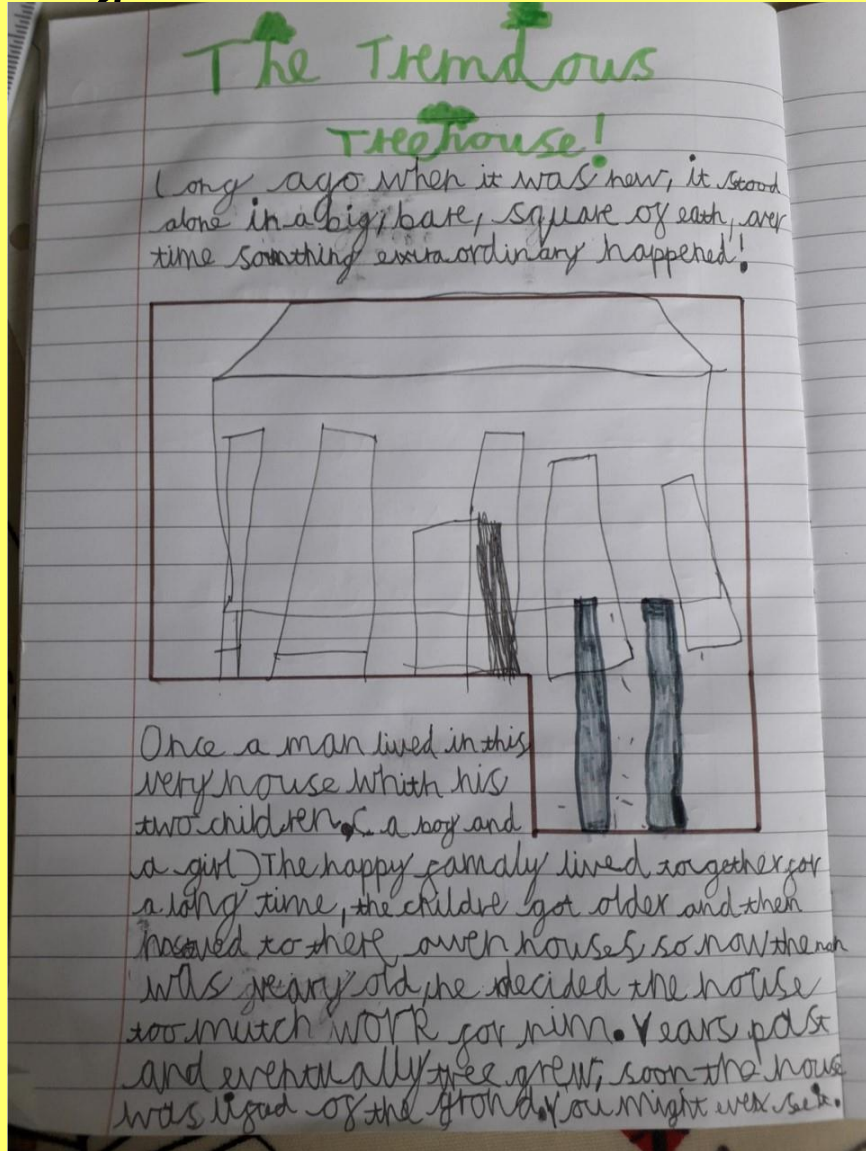 The Tremdous
Treehouse!
Long ago when it was new, it stood
alone in a big, bare, square of eath, over
time somthing extraordinary happened!
Once a man lived in this
very house whith his
two children. ( a boy and
a girl) The happy famaly lived together for
a long time, the childre got older and then
moved to there owen houses, so now the man
was veary old, he decided the house
too mutch work for him. Years past
and eventually tree grew, soon the house
was of the grond. You might even see it.